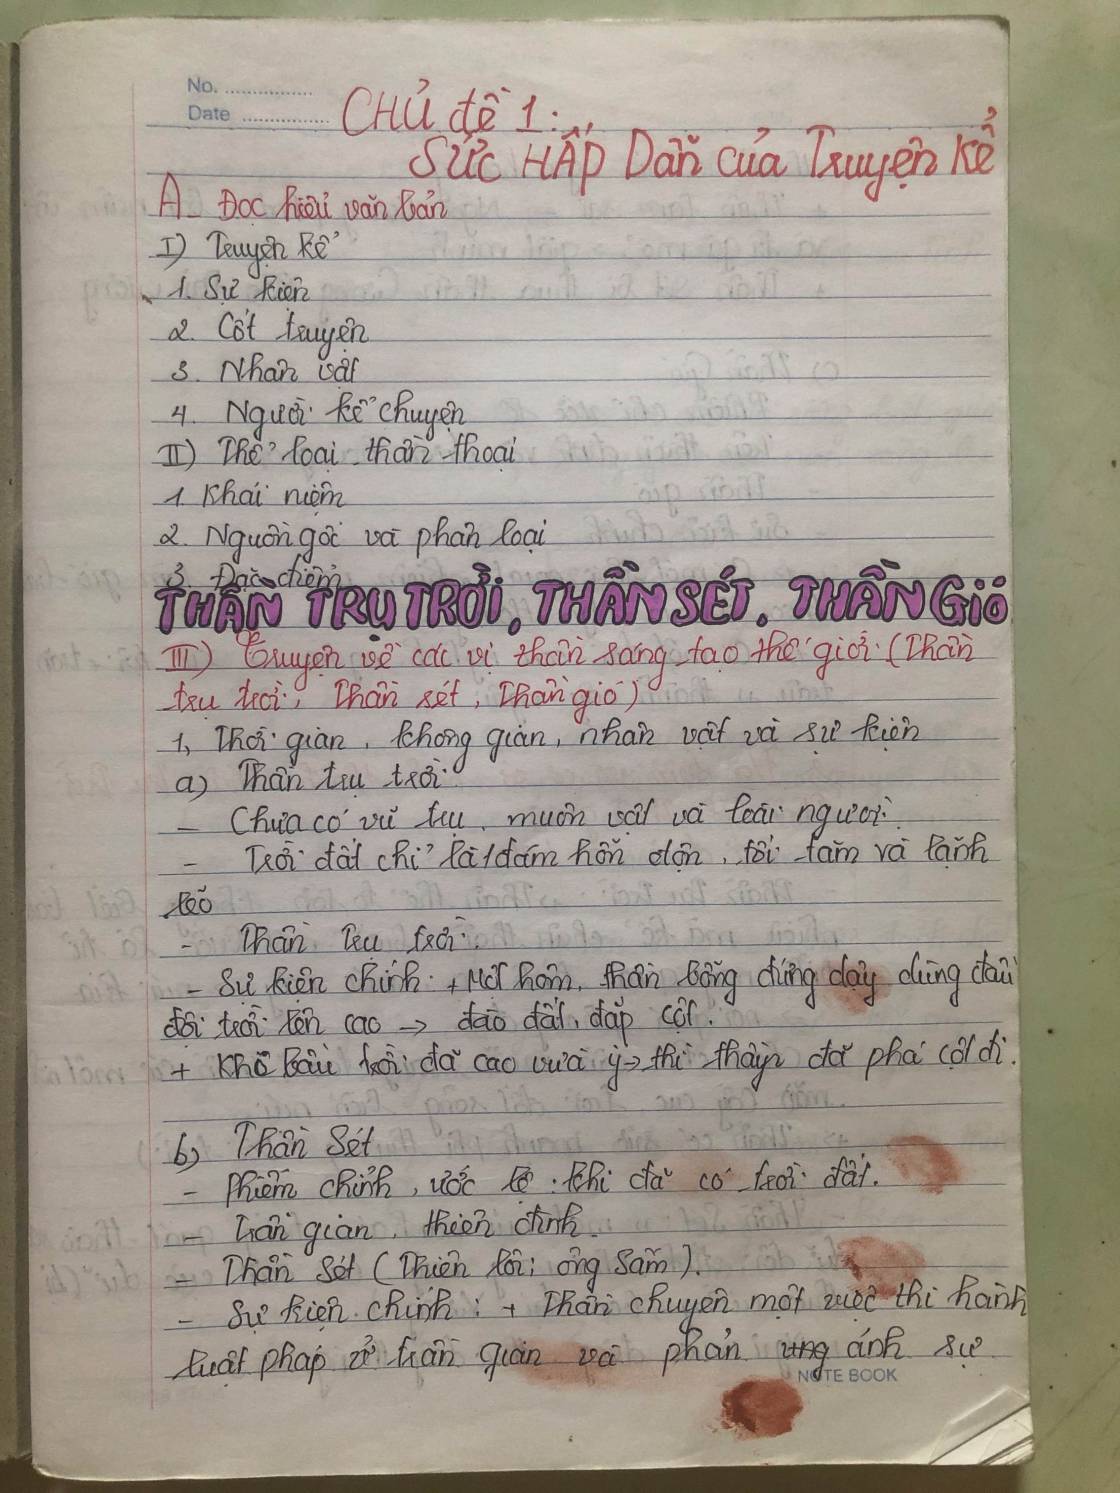 No. ................
Date ................
CHỦ đề 1:
SỨC HẤP Dẫn của Truyện kể
A. Đọc hiểu văn bản
I) Truyện kể
1. Sự kiện
2. Cốt truyện
3. Nhân vật
4. Người kể chuyện
II) Thể loại thần thoại
1 Khái niệm
2. Nguồn gốc và phân loại
3. Đặc điểm
THẦN TRỤ TRỜI, THẦN SÉT, THẦN GIÓ
III) Truyện về các vị thần sáng tạo thế giới (Thần
trụ trời, Thần sét, Thần gió)
1, Thời gian, không gian, nhân vật và sự kiện
a) Thần trụ trời
- Chưa có vũ trụ, muôn vật và loài người.
- Trời đất chỉ là 1 đám hỗn độn, tối tăm và lạnh
lẽo
- Thần trụ trời.
- Sự kiện chính: + Một hôm, thần bỗng đứng dậy dùng đầu
đội trời lên cao → đào đất, đắp cột.
+ Khi bầu trời đã cao vừa ý → thì thần đã phá cột đi.
b) Thần Sét
- Phiếm chỉnh, ước lệ: khi đã có trời đất.
- Trần gian, thiên đình.
- Thần Sét (Thiên lôi; ông Sấm).
- Sự kiện chính: + Thần chuyên một việc thi hành
luật pháp ở trần gian và phản ánh sự
NOTE BOOK